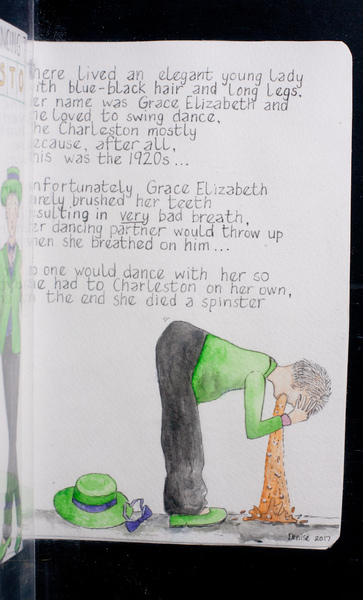 NCING
STO
here lived an elegant young lady
ith blue-black hair and long legs.
er name was Grace Elizabeth and
he loved to swing dance,
he Charleston mostly
ecause, after all,
his was the 1920s...
nfortunately Grace Elizabeth
arely brushed her teeth
esulting in very bad breath,
er dancing partner would throw up
hen she breathed on him...
o one would dance with her so
he had to Charleston on her own,
n the end she died a spinster
Denise 2017